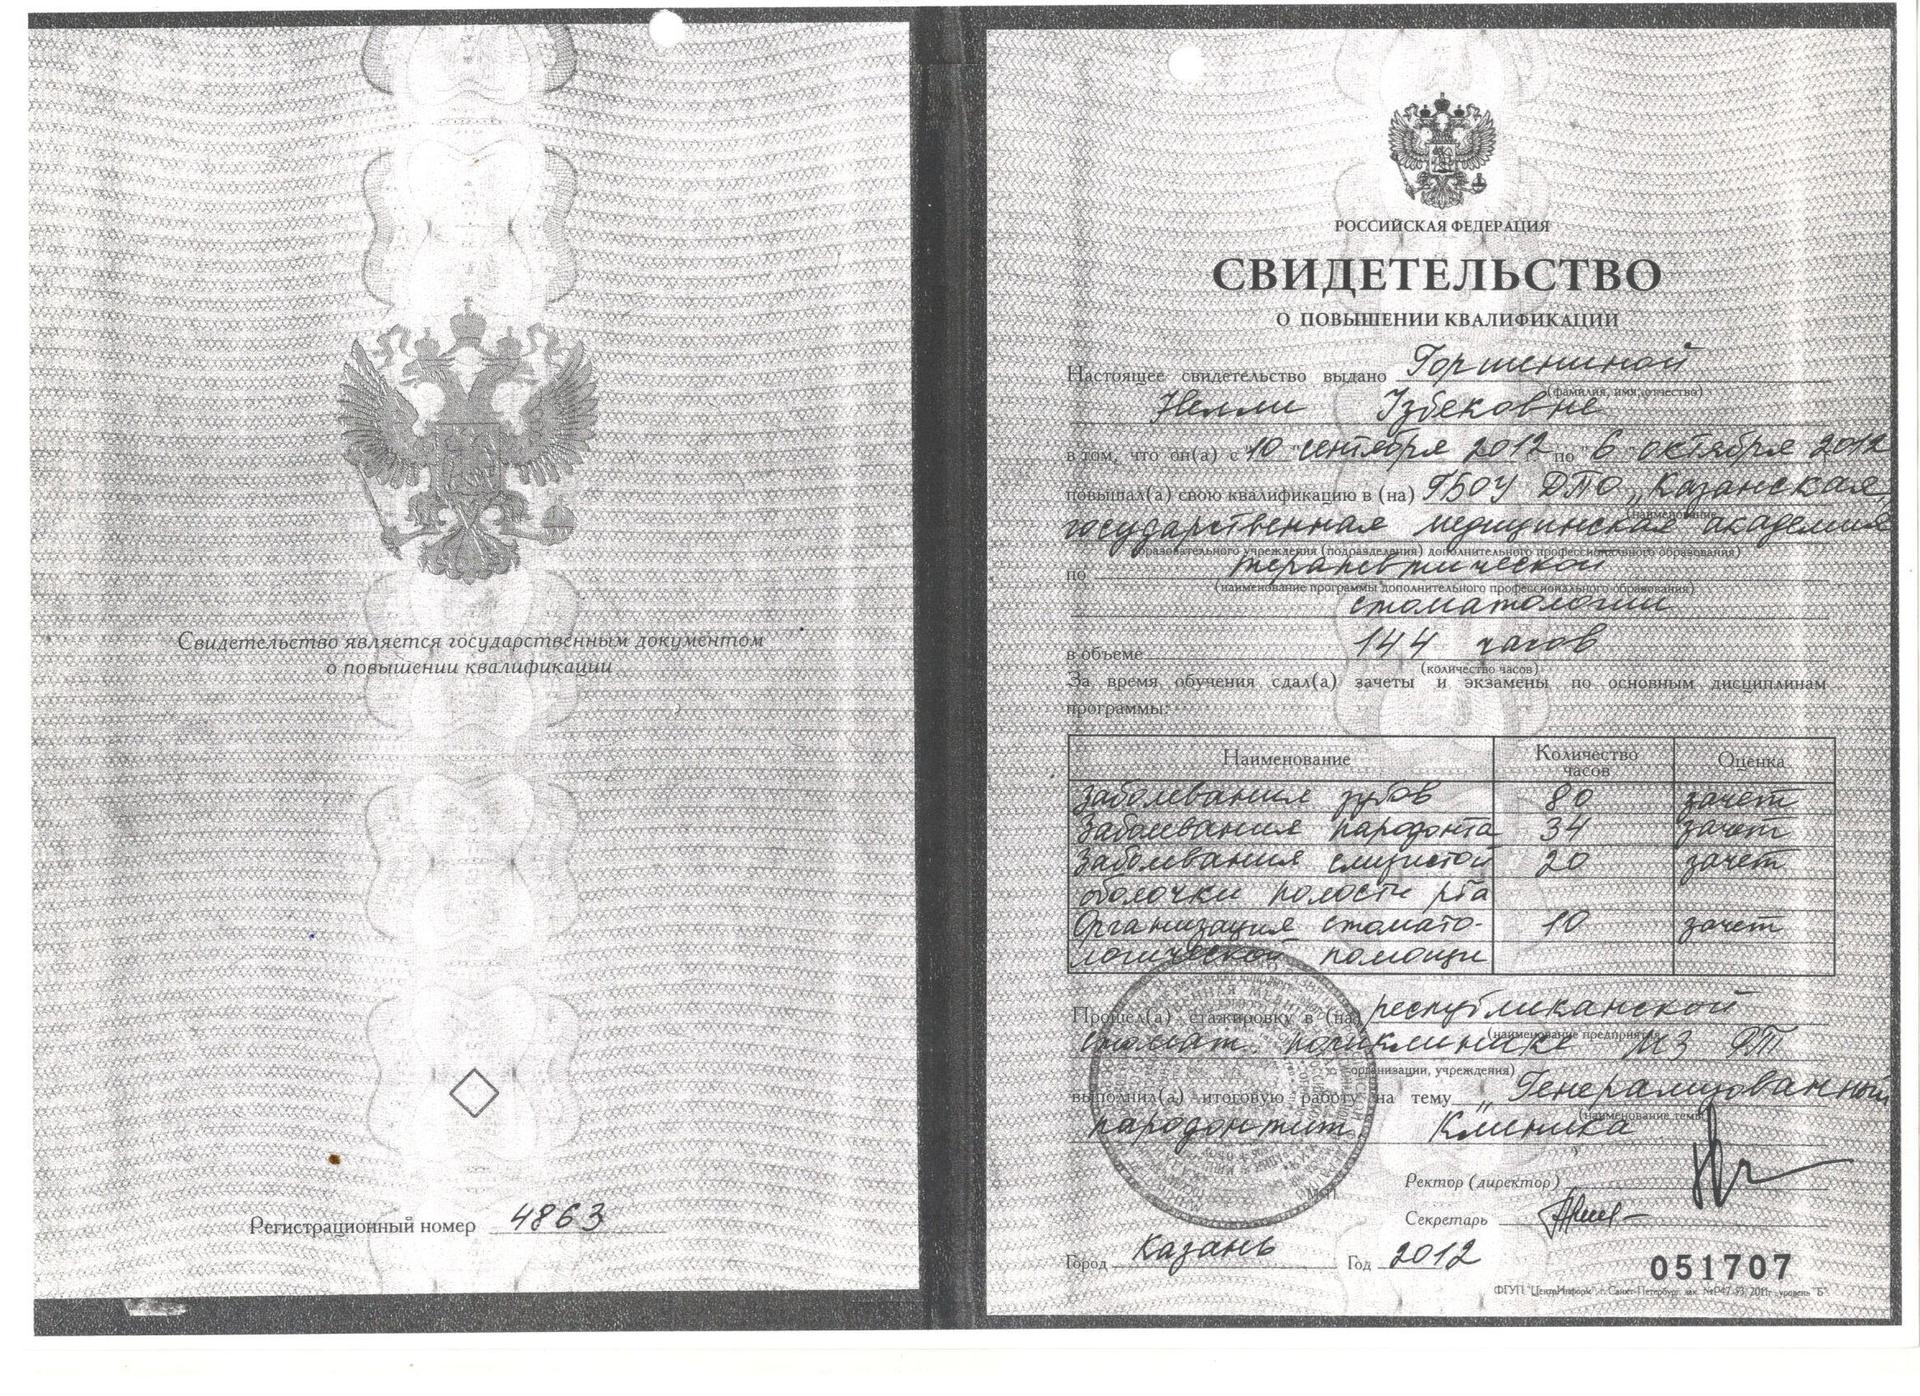 Свидетельство является государственным документом
о повышении квалификации
Регистрационный номер 4863
РОССИЙСКАЯ ФЕДЕРАЦИЯ
СВИДЕТЕЛЬСТВО
О ПОВЫШЕНИИ КВАЛИФИКАЦИИ
Настоящее свидетельство выдано Горшениной
(фамилия, имя, отчество)
Нелли Узбековне
в том, что он(а) с "10" сентября 2012 г. по "6" октября 2012
повышал(а) свою квалификацию в (на) ГБОУ ДПО „Казанская
(наименование
государственная медицинская академия
образовательного учреждения (подразделения) дополнительного профессионального образования)
по терапевтической
(наименование программы дополнительного профессионального образования)
стоматологии
в объеме 144 часов
(количество часов)
За время обучения сдал(а) зачеты и экзамены по основным дисциплинам
программы:
Наименование Количество часов Оценка
Заболевания зубов 80 зачет
Заболевания пародонта 34 зачет
Заболевания слизистой 20 зачет
оболочки полости рта
Организация стомато- 10 зачет
логической помощи
Прошел(а) стажировку в (на) республиканской
(наименование предприятия,
стомат. поликлинике МЗ РТ
организации, учреждения)
выполнил(а) итоговую работу на тему „Генерализованный
(наименование темы)
пародонтит Клиника
Ректор (директор)
Секретарь
Город Казань Год 2012
051707